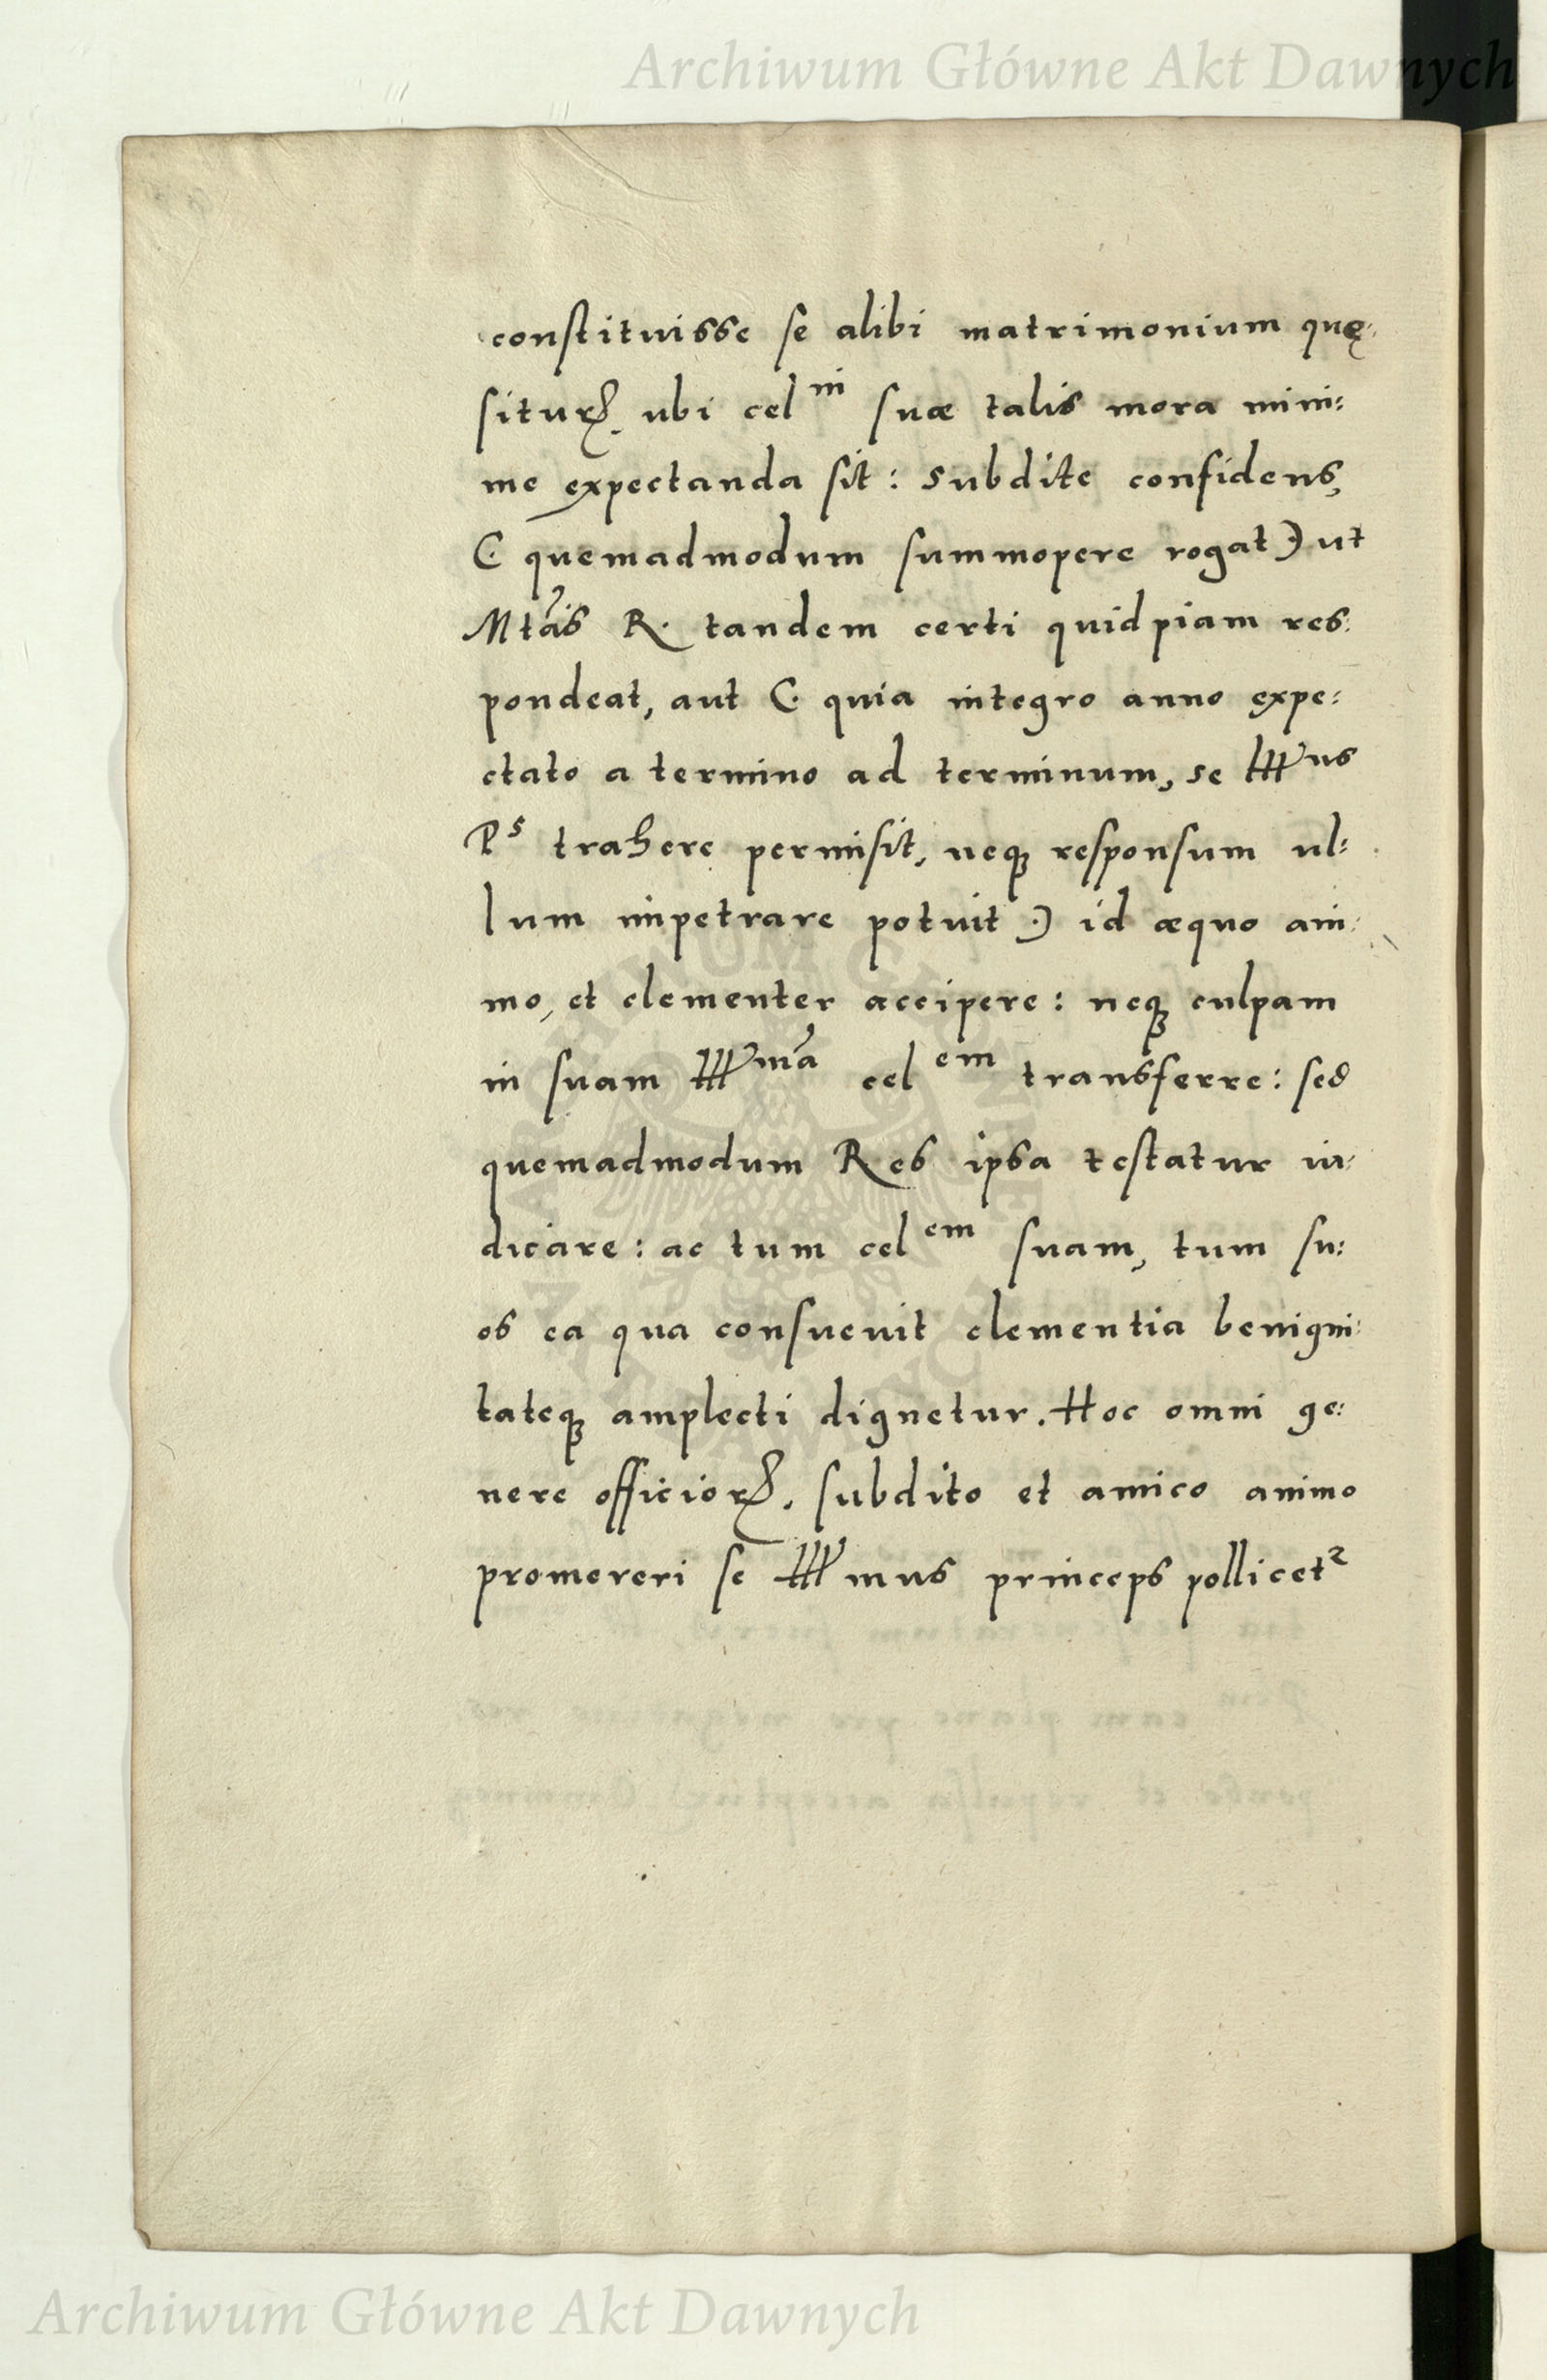 Archiwum Główne Akt Dawnych
constituisse se alibi matrimonium quę:
siturꝝ. ubi cel^ni suæ talis mora mini:
me expectanda sit: subdite confidens,
(· quemadmodum summopere rogat ·) ut
Mtãs R. tandem certi quidpiam res:
pondeat, aut (· quia integro anno expe:
ctato a termino ad terminum, se Ill^us
P^s trahere permisit, neqꝫ responsum ul:
lum impetrare potuit ·) id æquo ani:
mo, et clementer accipere: neqꝫ culpam
in suam Ill^mã cel^em transferre: sed
quemadmodum Res ipsa testatur iu:
dicare: ac tum cel^em suam, tum su:
os ea qua consuevit clementia benigni:
tateqꝫ amplecti dignetur. Hoc omni ge:
nere officiorꝝ. subdito et amico animo
promereri se Illmus princeps pollicet^r
Archiwum Główne Akt Dawnych